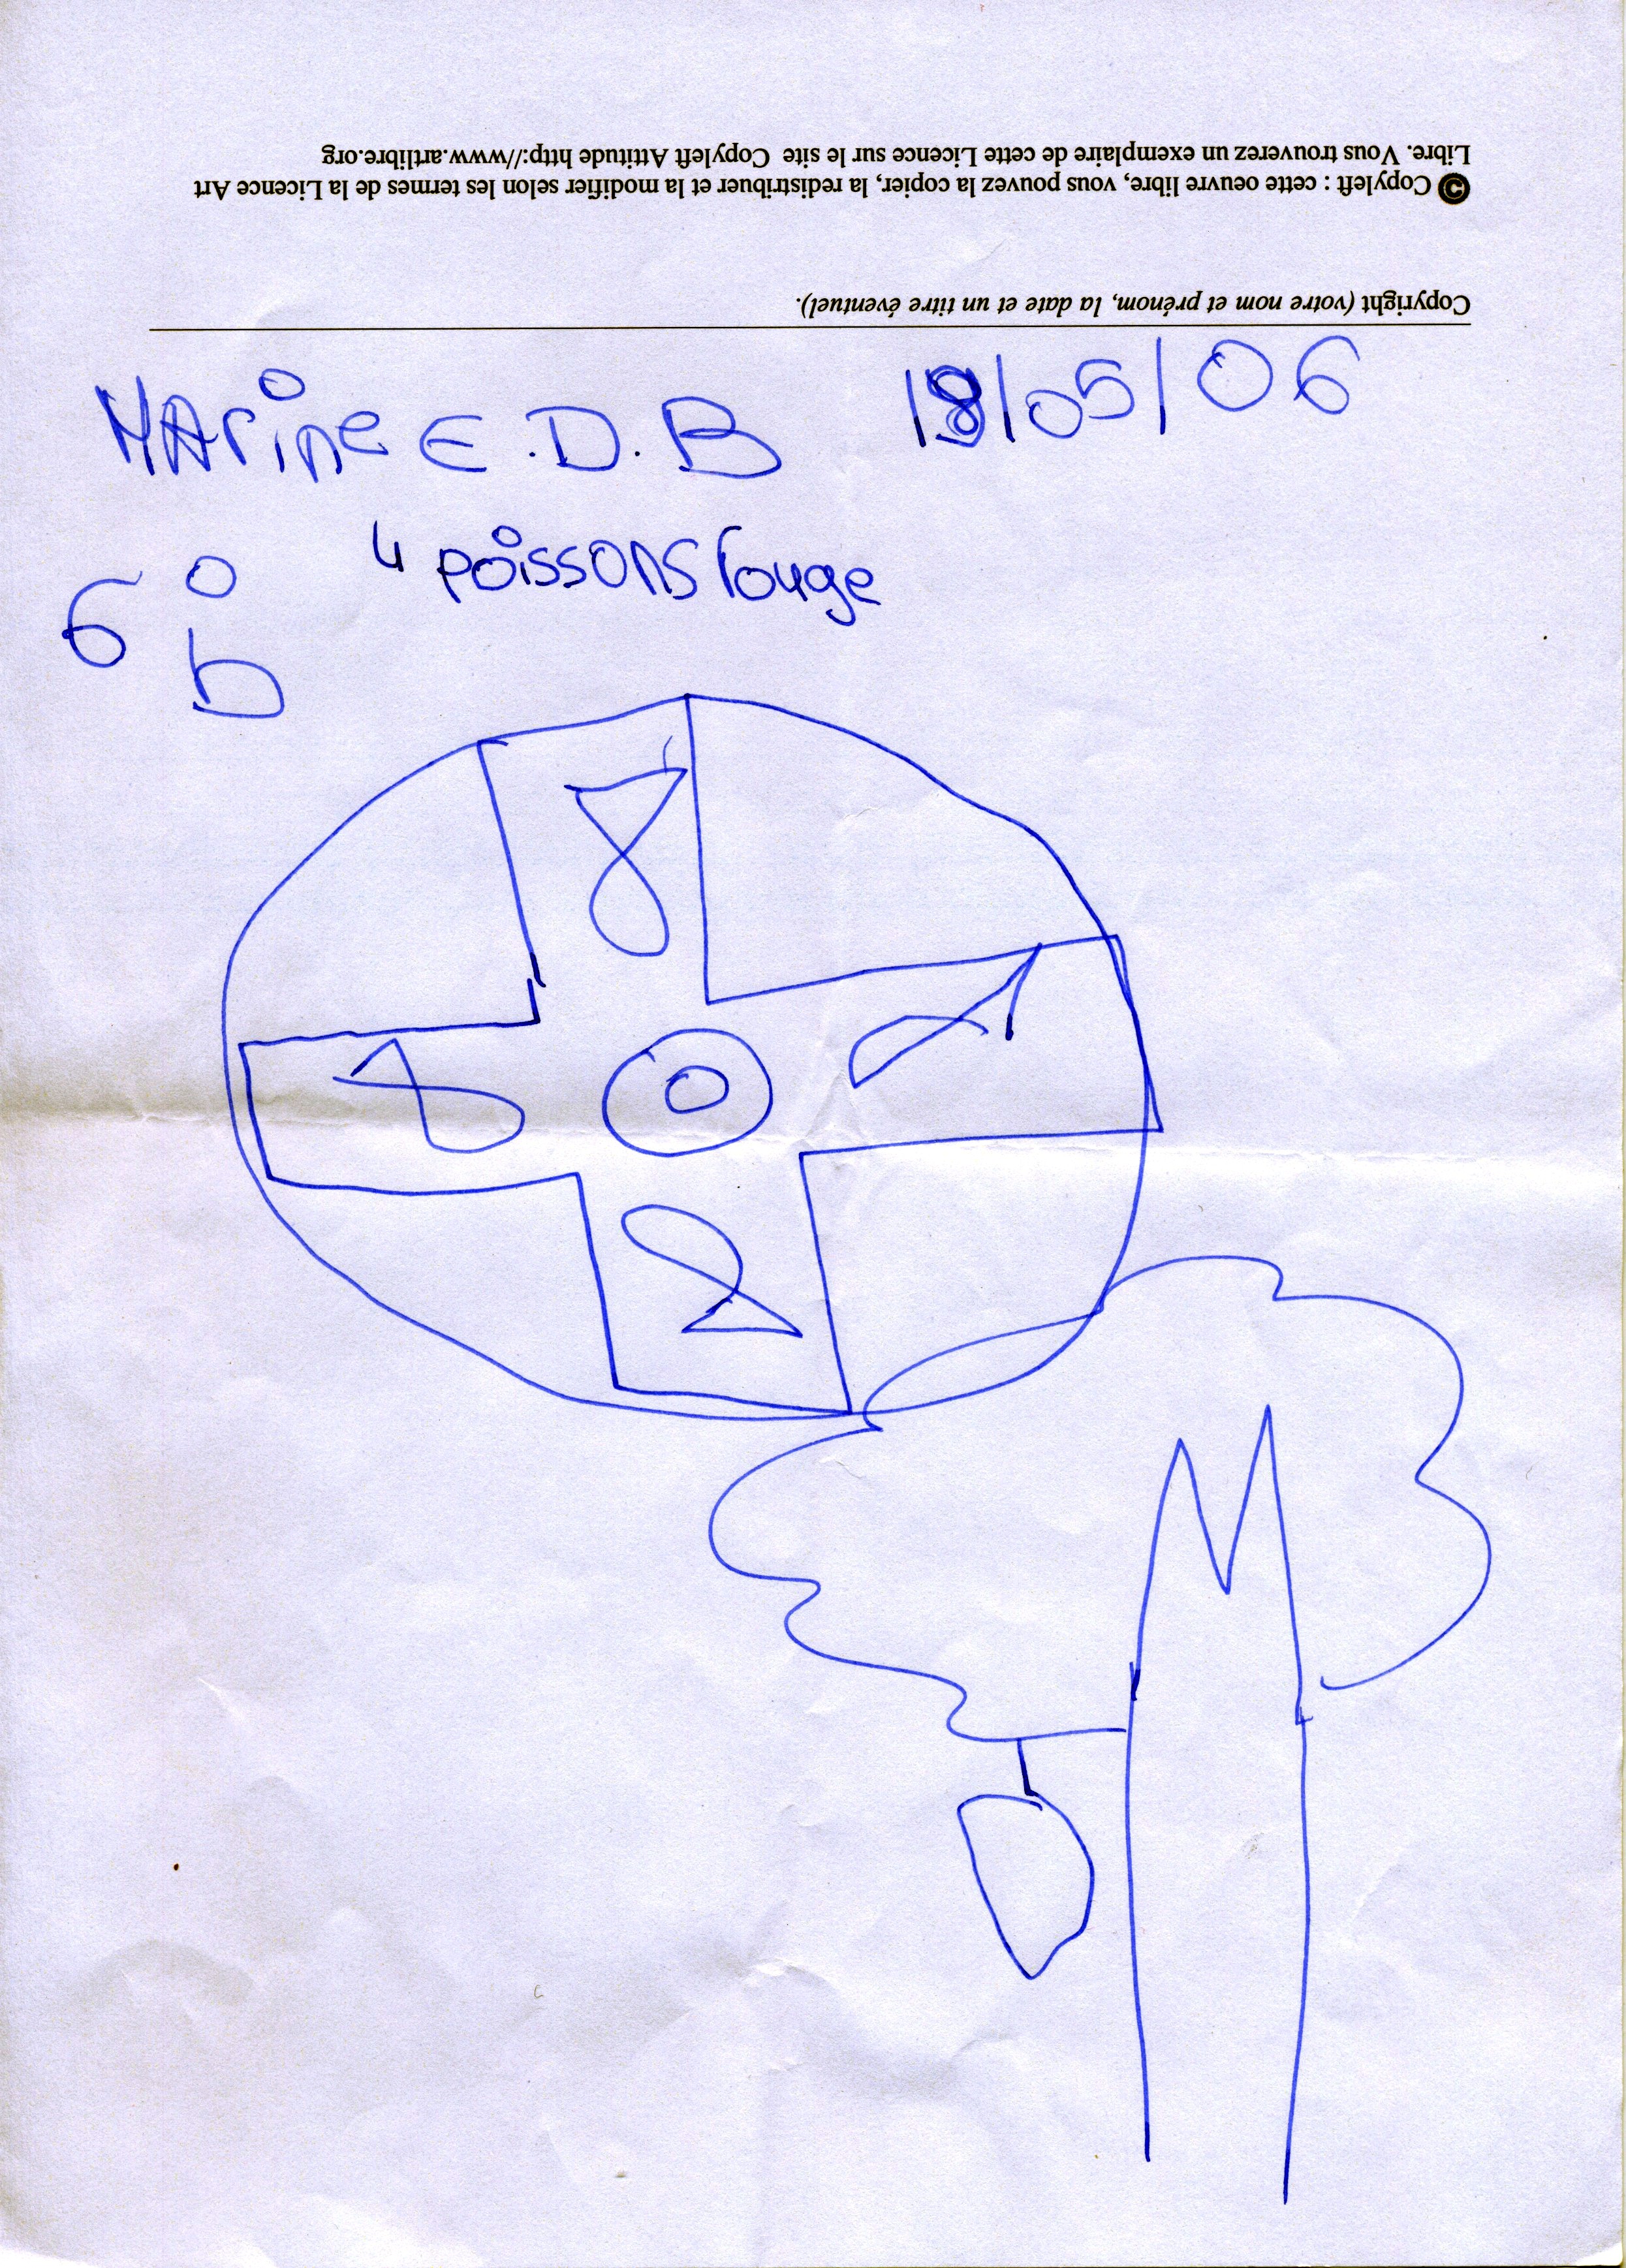 Copyright (votre nom et prénom, la date et un titre éventuel).
© Copyleft : cette oeuvre libre, vous pouvez la copier, la redistribuer et la modifier selon les termes de la Licence Art
Libre. Vous trouverez un exemplaire de cette Licence sur le site Copyleft Attitude http://www.artlibre.org
MArine E.D.B 18/05/06
4 poissons rouge
6°b